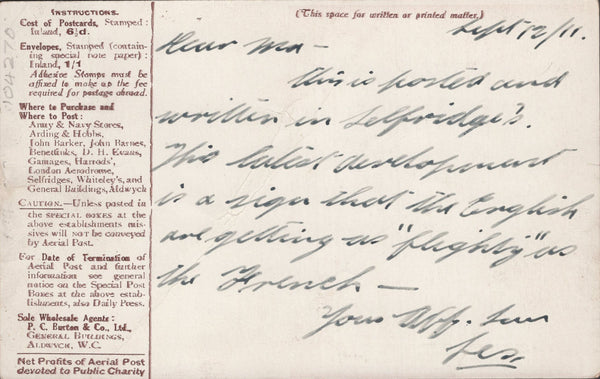 INSTRUCTIONS.
Cost of Postcards, Stamped:
Inland, 6½d.
Envelopes, Stamped (contain-
ing special note paper):
Inland, 1/1
Adhesive Stamps must be
affixed to make up the fee
required for postage abroad.
Where to Purchase and
Where to Post:
Army & Navy Stores,
Arding & Hobbs,
John Barker, John Barnes,
Benetfinks, D. H. Evans,
Gamages, Harrods',
London Aerodrome,
Selfridges, Whiteley's, and
General Buildings, Aldwych
CAUTION.—Unless posted in
the SPECIAL BOXES at the
above establishments mis-
sives will NOT be conveyed
by Aerial Post.
For Date of Termination of
Aerial Post and further
information see general
notice on the Special Post
Boxes at the above estab-
lishments, also Daily Press.
Sole Wholesale Agents:
P. C. Burton & Co., Ltd.,
GENERAL BUILDINGS,
ALDWYCH, W.C.
Net Profits of Aerial Post
devoted to Public Charity
104270
(This space for written or printed matter.)
Sept 12/11.
Dear Ma —
This is posted and
written in Selfridge's.
This latest development
is a sign that the English
are getting as "flighty" as
the French —
Your Aff. Son
Les.